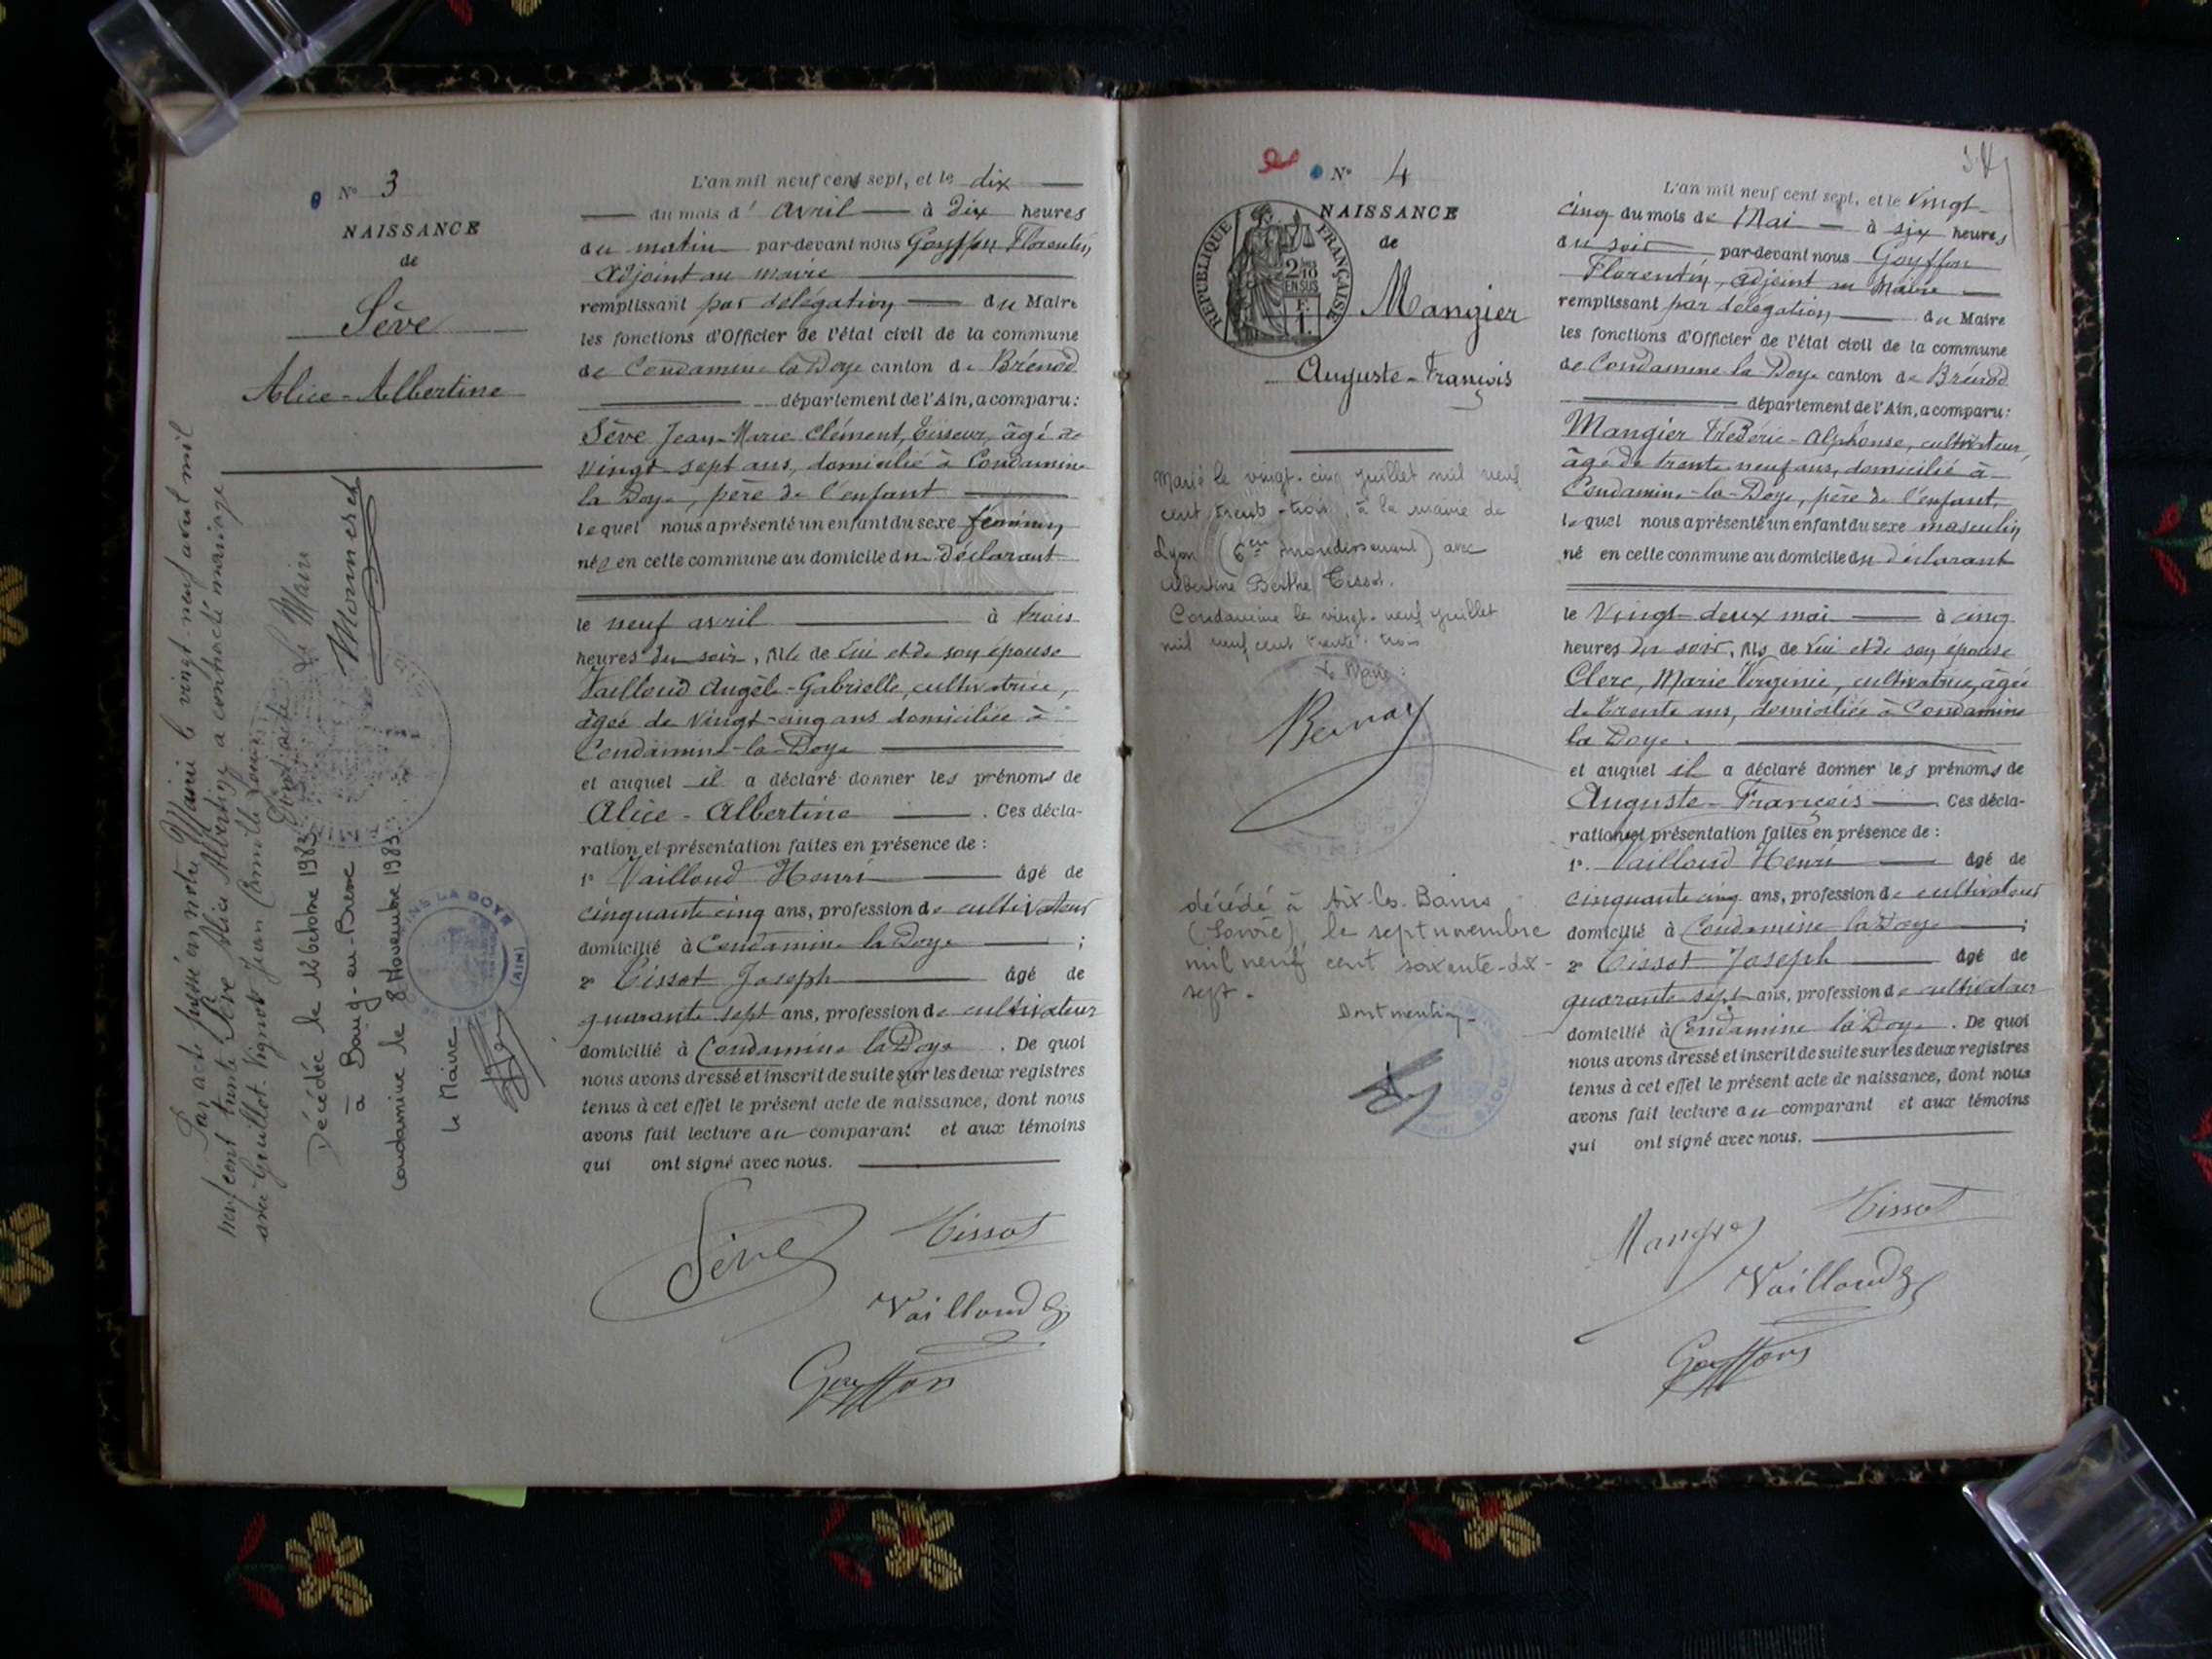 N° 3
NAISSANCE
de
Sève
Alice-Albertine
Par acte passé en notre Mairie le vingt-neuf avril mil
neuf cent trente Sève Alice Albertine a contracté mariage
avec Guillot Vignot Jean Camille Louis
Le Maire
Mounier
Décédée le 12 Octobre 1983
à Bourg-en-Bresse
Condamine le 8 Novembre 1983
Le Maire
LA DOYE
(AIN)
L'an mil neuf cent sept, et le dix
du mois d' avril à dix heures
du matin par-devant nous Goyffon Florentin,
adjoint au maire
remplissant par délégation du Maire
les fonctions d'Officier de l'état civil de la commune
de Condamine la Doye canton de Brénod
département de l'Ain, a comparu :
Sève Jean-Marie Clément, tisseur, âgé de
vingt sept ans, domicilié à Condamine
la Doye, père de l'enfant
lequel nous a présenté un enfant du sexe féminin
née en cette commune au domicile du déclarant
le neuf avril à trois
heures du soir, fille de lui et de son épouse
Vailloud Angèle-Gabrielle, cultivatrice,
âgée de vingt-cinq ans domiciliée à
Condamine-la-Doye
et auquel il a déclaré donner les prénoms de
Alice - Albertine . Ces décla-
ration et présentation faites en présence de :
1° Vailloud Henri âgé de
cinquante cinq ans, profession de cultivateur
domicilié à Condamine la Doye ;
2° Tissot Joseph âgé de
quarante sept ans, profession de cultivateur
domicilié à Condamine la Doye . De quoi
nous avons dressé et inscrit de suite sur les deux registres
tenus à cet effet le présent acte de naissance, dont nous
avons fait lecture au comparant et aux témoins
qui ont signé avec nous.
Sève Tissot
Vailloud
Goyffon
N° 4
NAISSANCE
de
RÉPUBLIQUE FRANÇAISE
2/10
EN SUS
F.
1.
Mangier
Auguste-François
Marié le vingt-cinq juillet mil neuf
cent trente-trois, à la mairie de
Lyon (6em arrondissement) avec
Albertine Berthe Tissot.
Condamine le vingt-neuf juillet
mil neuf cent trente-trois
Le Maire :
décédé à Aix-les-Bains
(Savoie), le sept novembre
mil neuf cent soixante-dix-
sept.
Dont mention
L'an mil neuf cent sept, et le vingt-
cinq du mois de Mai à six heures
du soir par-devant nous Goyffon
Florentin, adjoint au Maire
remplissant par délégation du Maire
les fonctions d'Officier de l'état civil de la commune
de Condamine la Doye canton de Brénod
département de l'Ain, a comparu :
Mangier Frédéric-Alphonse, cultivateur,
âgé de trente neuf ans, domicilié à
Condamine-la-Doye, père de l'enfant,
lequel nous a présenté un enfant du sexe masculin
né en cette commune au domicile du déclarant
le vingt-deux mai à cinq
heures du soir, fils de lui et de son épouse
Clerc, Marie Virginie, cultivatrice, âgée
de trente ans, domiciliée à Condamine
la Doye.
et auquel il a déclaré donner les prénoms de
Auguste-François . Ces décla-
ration et présentation faites en présence de :
1°. Vailloud Henri âgé de
cinquante cinq ans, profession de cultivateur
domicilié à Condamine la Doye ;
2° Tissot Joseph âgé de
quarante sept ans, profession de cultivateur
domicilié à Condamine la Doye . De quoi
nous avons dressé et inscrit de suite sur les deux registres
tenus à cet effet le présent acte de naissance, dont nous
avons fait lecture au comparant et aux témoins
qui ont signé avec nous.
Mangier Tissot
Vailloud
Goyffon